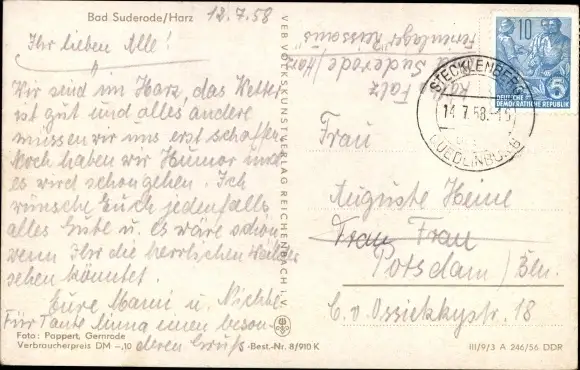 Bad Suderode/Harz 12.7.58
Ihr lieben Alle!
Wir sind im Harz, das Wetter
ist gut und alles andere
müssen wir uns erst schaffen.
Noch haben wir Humor und
es wird schon gehen. Ich
wünsche Euch jedenfalls
alles Gute u. es wäre schön
wenn Ihr die herrlichen Wälder
sehen könntet.
Eure Mami u.
Für Tante Anna einen beson-
deren Gruß
Foto: Pappert, Gernrode
Verbraucherpreis DM -,10
Best.-Nr. 8/910 K
VEB VOLKSKUNSTVERLAG REICHENBACH i. V.
Suderode/Harz
Ferienlager
10
5
DEUTSCHE
DEMOKRATISCHE REPUBLIK
STECKLENBERG
14.7.58.-16
QUEDLINBURG
Frau
Auguste Heine
Frau Frau
Potsdam/
C.v. Ossietzkystr. 18
III/9/3 A 246/56 DDR